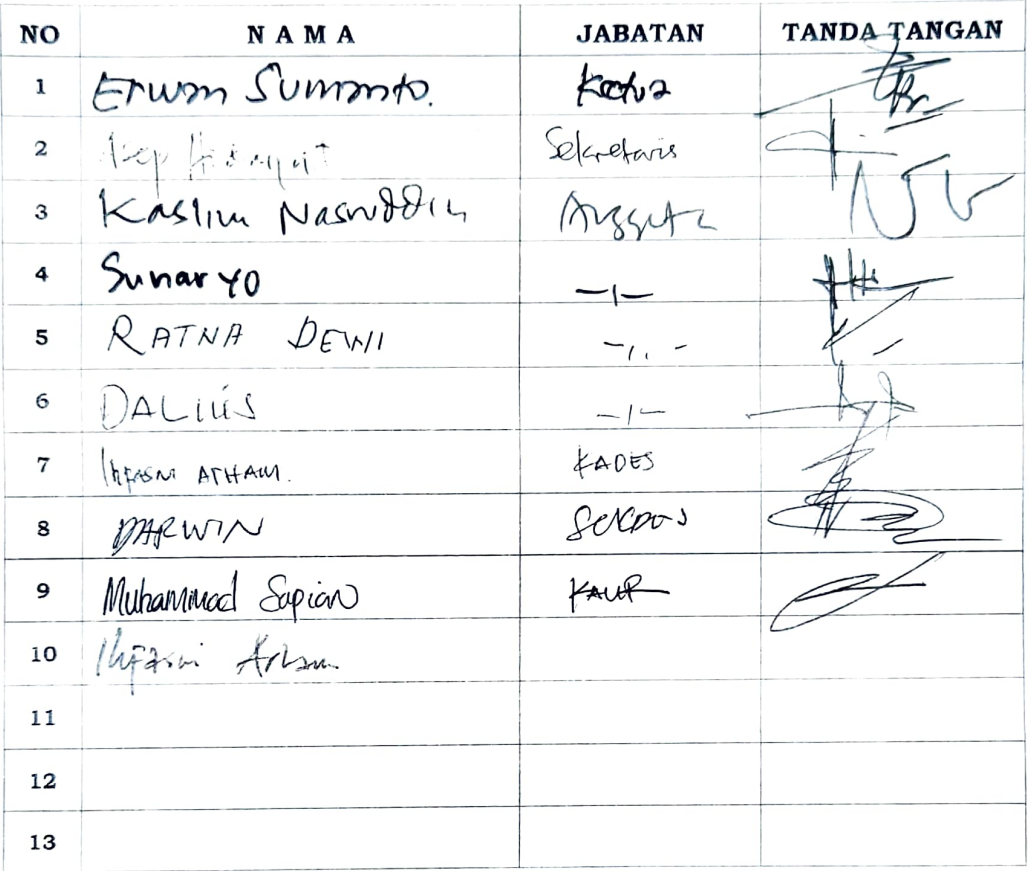 NO NAMA JABATAN TANDA TANGAN
1 Erwan Sumanto. Ketua
2 Hidayat Sekretaris
3 Kaslim Nasruddin Anggota
4 Sunaryo -ı-
5 RATNA DEWI -ı. -
6 DALIUS -ı-
7 Ihfasni ATHAM. KADES
8 DARWIN SEKDES
9 Muhammad Sapian KAUR
10 Ihfasni Arham
11
12
13